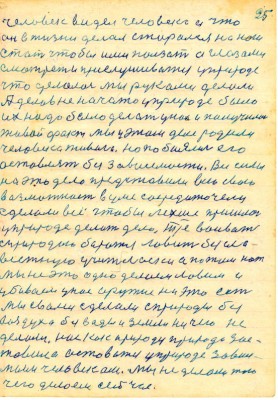 25
человек видел человека и что
он в жизни делал старался на ноги
стать чтобы ими ползать а глазами
смотреть прислушиваться у природе
что делалось мы руками делали
А дело в не начато у природе было
их надо было делать у нас и получился
живой факт мы у этом деле родили
человека живого, но побоялись его
оставлять без зависимости. Все силы
на это дело представили всю свою
возможность в уме сосредоточили
сделали всё чтобы легше пришлось
у природе делать дело, Где воевать
с природою бороться ловить без
вестную учительскую а потом как
мы не это одно делаем ловим и
убиваем у нас оружие на это есть
мы сами сделали с природы без
воздуха без воды и земли ничего не
делали, нас как природу природа
оставить у природе
человеком. Мы не делали того
чего делаем сейчас.